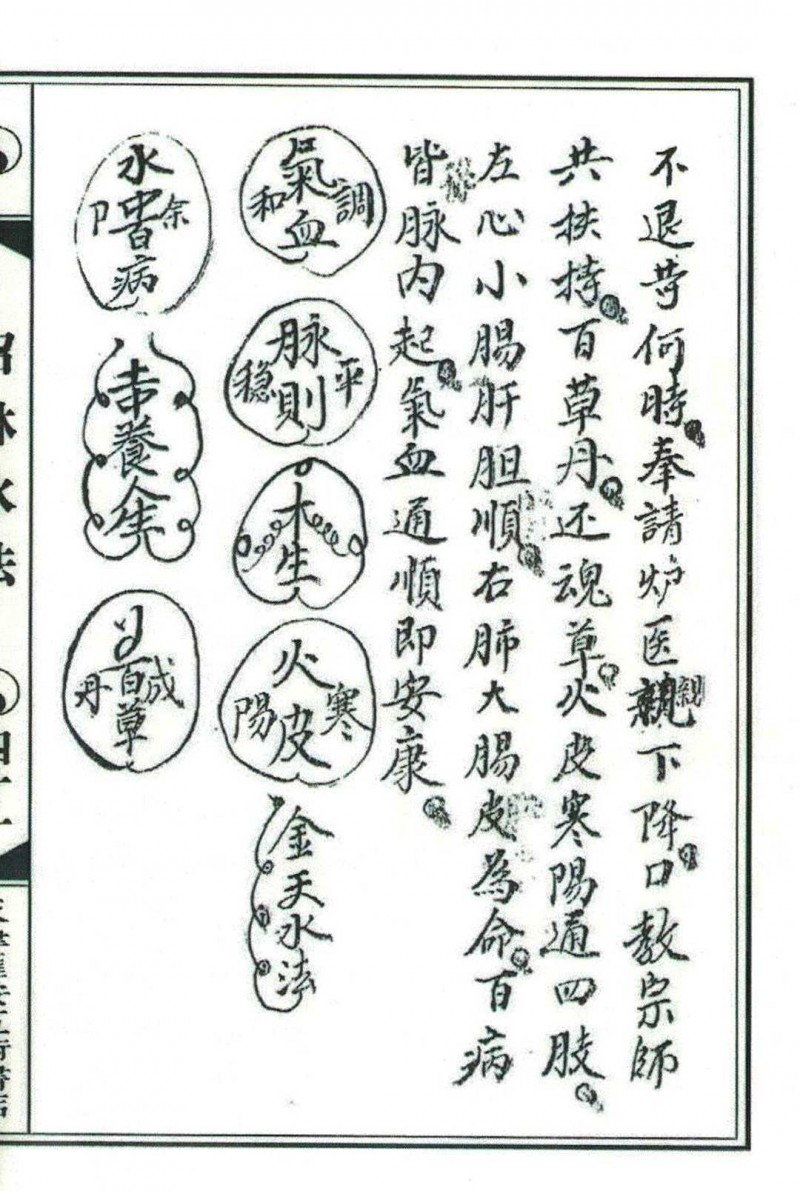 不退苛何時奉請炉医親下降口教宗師
親
共扶持百草丹还魂草火皮寒陽通四肢
左心小腸肝胆順右肺大腸皮為命百病
皆脉内起氣血通順即安康
調
氣血
和
平
脉則
稳
木生
寒
火皮
陽
金天水法
水
病
吉養人生
成
百草
丹
水法